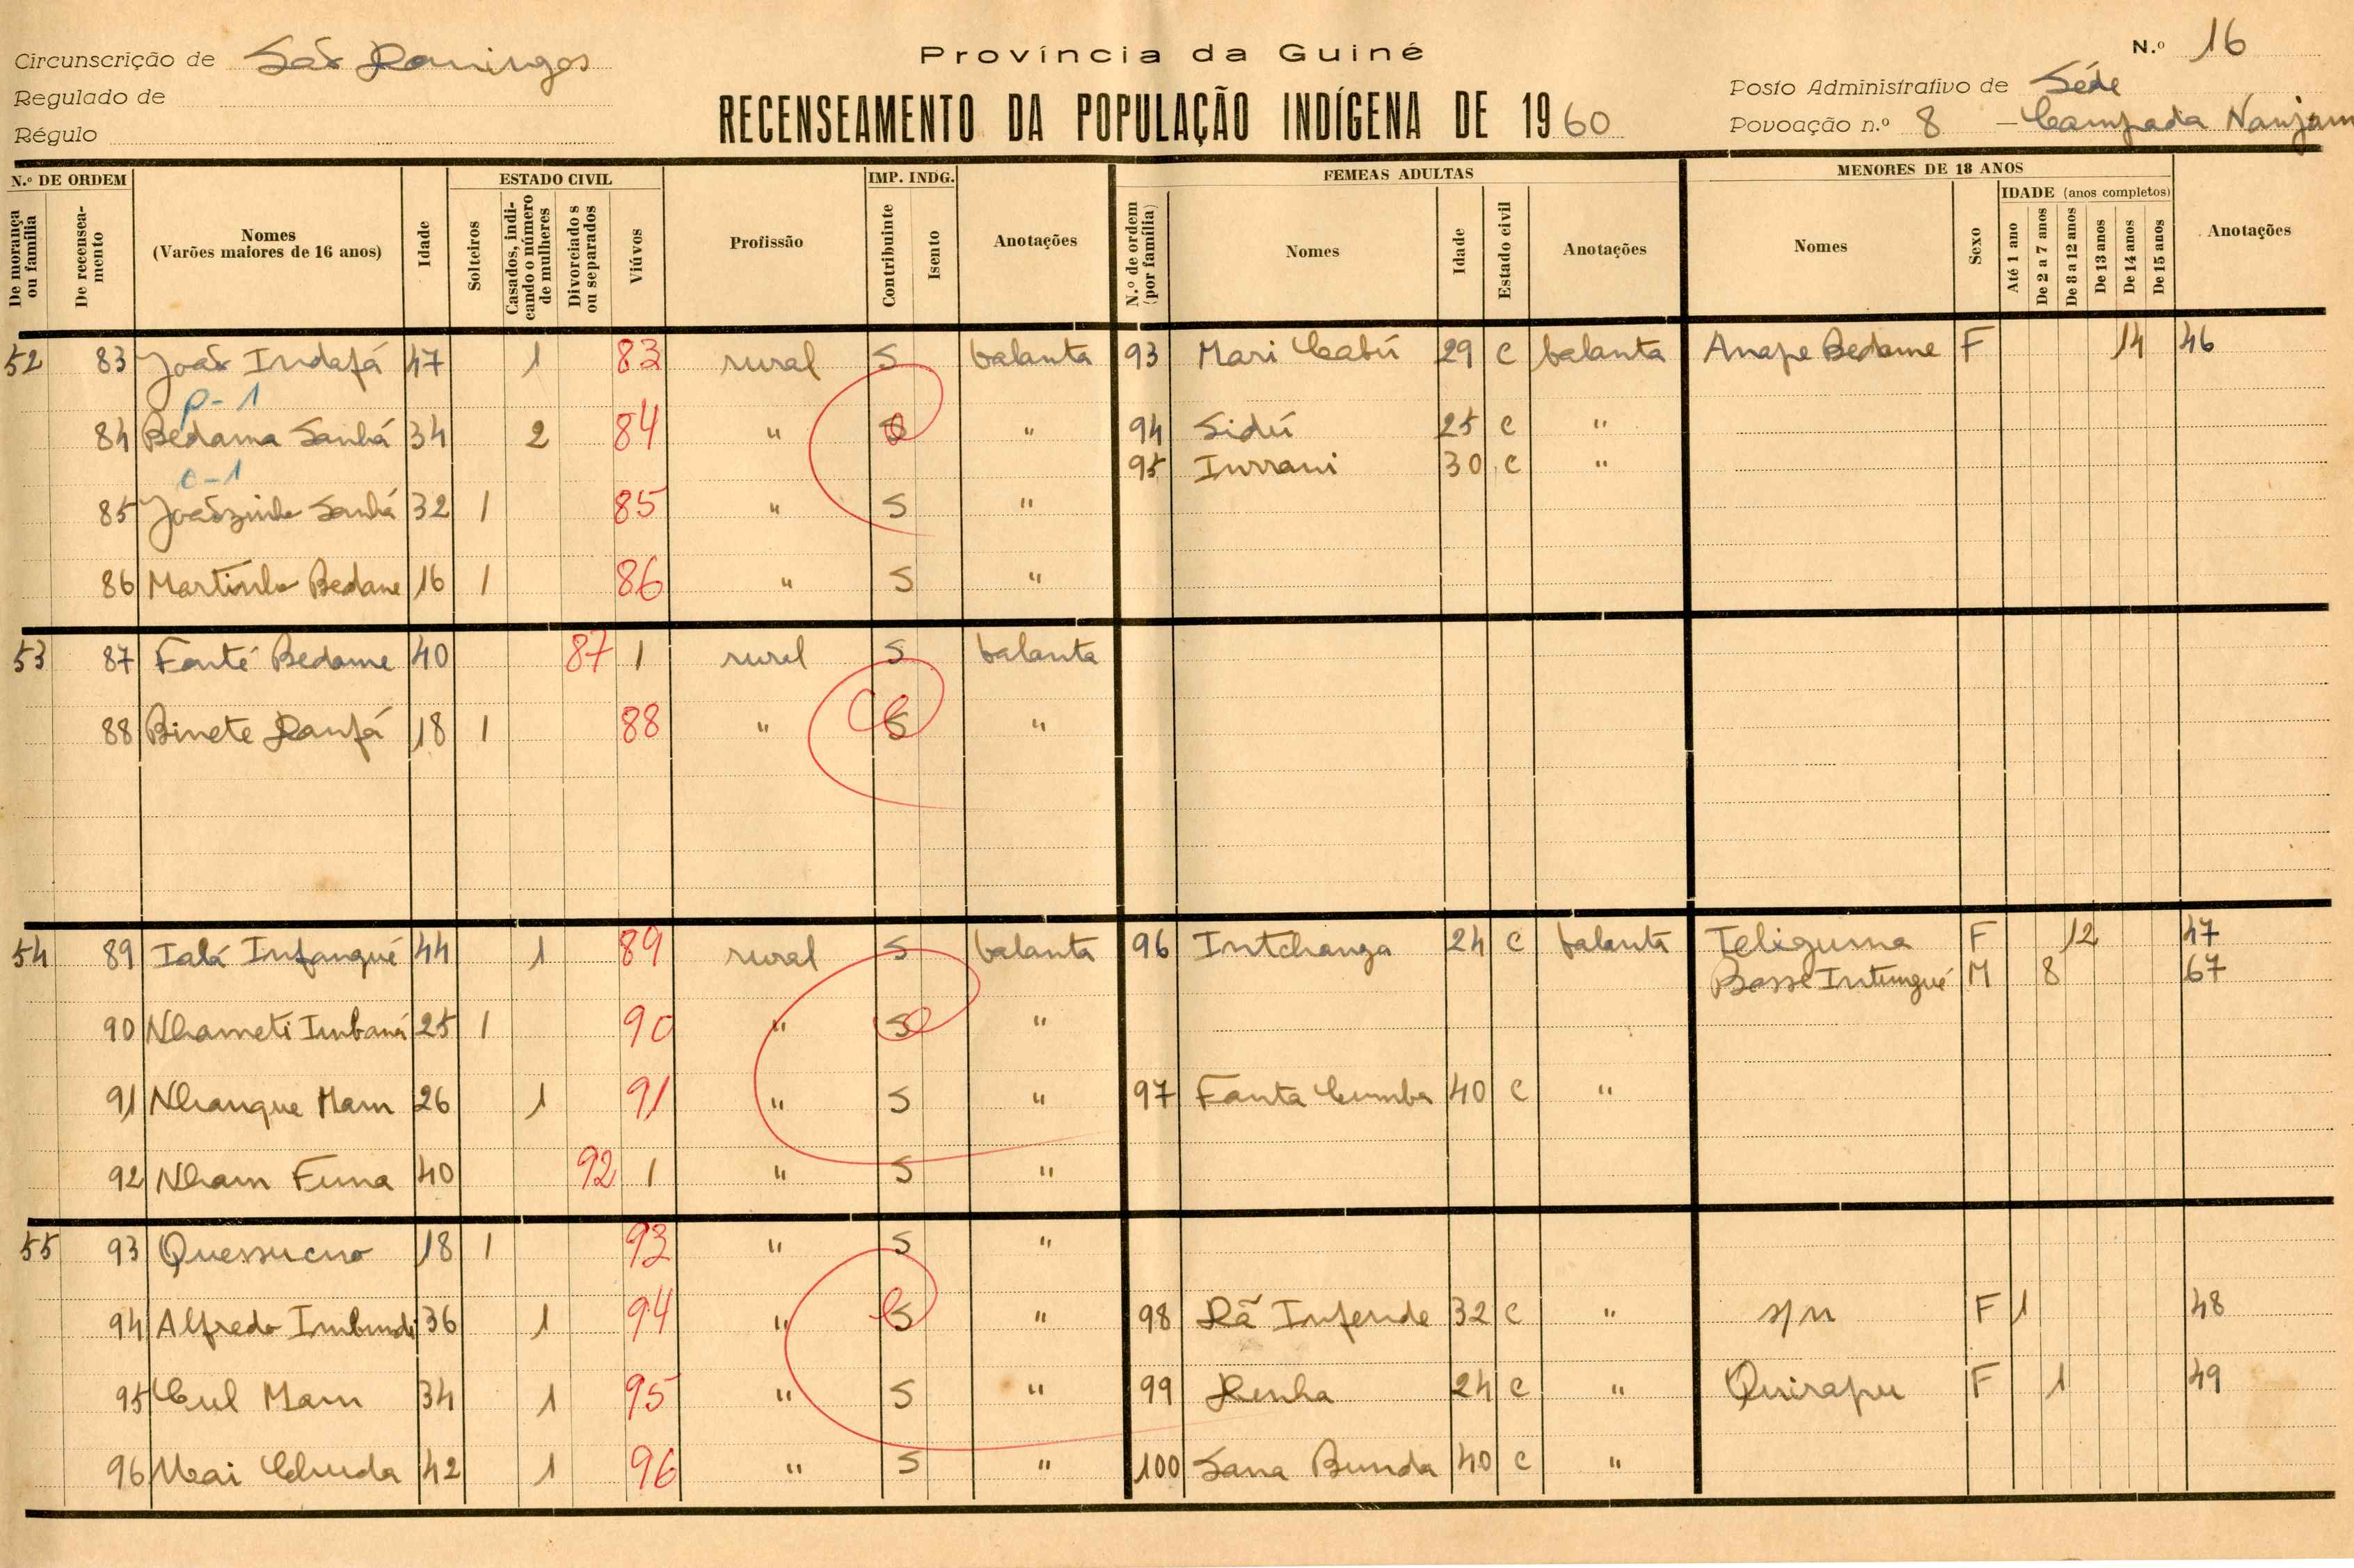 Circunscrição de São Domingos
Regulado de
Régulo
Província da Guiné
RECENSEAMENTO DA POPULAÇÃO INDÍGENA DE 1960
N.º 16
Posto Administrativo de Séde
Povoação n.º 8 — Campada Nanjam
N.º DE ORDEM
De morança ou família
De recenseamento
Nomes
(Varões maiores de 16 anos)
Idade
ESTADO CIVIL
Solteiros
Casados, indicando o número de mulheres
Divorciados ou separados
Viúvos
Profissão
IMP. INDG.
Contribuinte
Isento
Anotações
FEMEAS ADULTAS
N.º de ordem (por família)
Nomes
Idade
Estado civil
Anotações
MENORES DE 18 ANOS
Nomes
Sexo
IDADE (anos completos)
Até 1 ano
De 2 a 7 anos
De 8 a 12 anos
De 13 anos
De 14 anos
De 15 anos
Anotações
52 83 João Indafá 47 1 83 rural S balanta 93 Mari Cabú 29 C balanta Anape Bedame F 14 46
P-1
84 Bedama Sanhá 34 2 84 " " 94 Sidú 25 C "
C-1 95 Inrrani 30 C "
85 Joãozinho Sanhá 32 1 85 " S "
86 Martinho Bedane 16 1 86 " S "
53 87 Fonté Bedame 40 87 1 rural S balanta
88 Binete Danfá 18 1 88 " S "
54 89 Ialá Infanqué 44 1 89 rural S balanta 96 Intchanga 24 C balanta Teliguma F 12 47
Bosse Intungué M 8 67
90 Nhameti Imbaná 25 1 90 " S "
91 Nhanque Mam 26 1 91 " S " 97 Fanta Cumba 40 C "
92 Nham Funa 40 92 1 " S "
55 93 Quessucuo 18 1 93 " S "
94 Alfredo Imbundi 36 1 94 " S " 98 Dã Infende 32 C " s/n F 1 48
95 Cul Mam 34 1 95 " S " 99 Denha 24 C " Quirapu F 1 49
96 Mai Chuda 42 1 96 " S " 100 Sana Bunda 40 C "